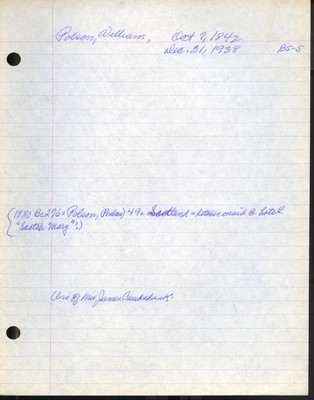 Polson, William, Oct 7, 1842
Dec. 31, 1938 B5-5
(1880 Bed 76 Polson, 49 Scotland - kitchen maid @ hotel
"Sister Mary"?)
(bro of Mrs James Cruickshank.